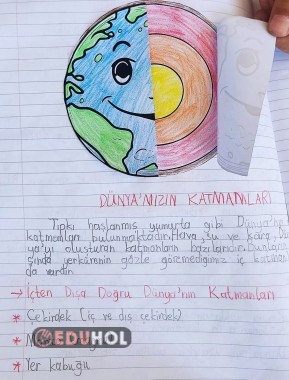 DÜNYA'MIZIN KATMANLARI
Tıpkı haşlanmış yumurta gibi Dünya'nın
katmanları bulunmaktadır. Hava, su ve kara, Dün
ya'yı oluşturan katmanların bazılarıdır. Bunların
şında yerkürenin gözle görmediğimiz iç katman
da vardır.
→ İçten Dışa Doğru Dünya'nın Katmanları
* Çekirdek (iç ve dış çekirdek)
*
EDUHOL
* Yer kabuğu